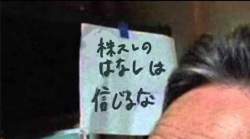 株スレの
はなしは
信じるな